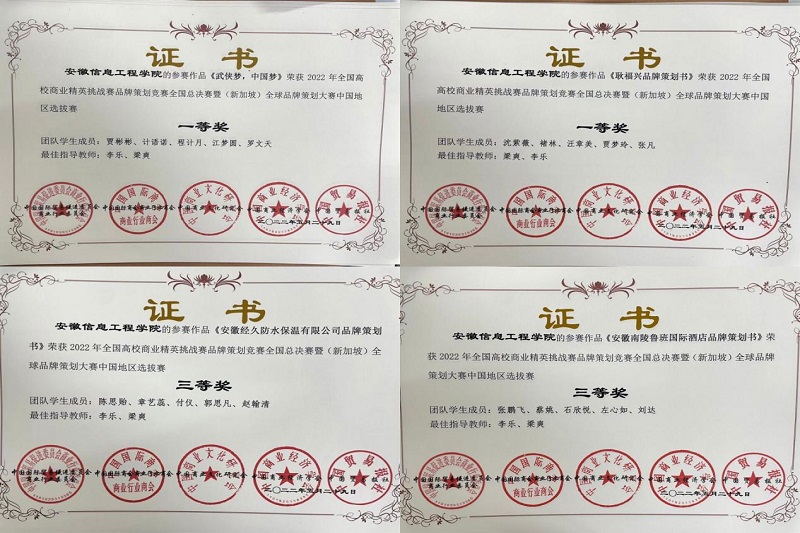 证书
安徽信息工程学院的参赛作品《武侠梦，中国梦》荣获 2022 年全国高
校商业精英挑战赛品牌策划竞赛全国总决赛暨（新加坡）全球品牌策划大赛中国
地区选拔赛
一等奖
团队学生成员：贾彬彬、计语诺、程计月、江梦圆、罗文天
最佳指导教师：李乐、梁爽
二〇二二年五月二十九日
证书
安徽信息工程学院的参赛作品《耿福兴品牌策划书》荣获 2022 年全国
高校商业精英挑战赛品牌策划竞赛全国总决赛暨（新加坡）全球品牌策划大赛中国
地区选拔赛
一等奖
团队学生成员：沈紫薇、褚林、汪章美、贾梦玲、张凡
最佳指导教师：梁爽、李乐
二〇二二年五月二十九日
证书
安徽信息工程学院的参赛作品《安徽经久防水保温有限公司品牌策划
书》荣获 2022 年全国高校商业精英挑战赛品牌策划竞赛全国总决赛暨（新加坡）全
球品牌策划大赛中国地区选拔赛
三等奖
团队学生成员：陈思贻、章艺蕊、付仪、郭思凡、赵翰清
最佳指导教师：李乐、梁爽
二〇二二年五月二十九日
证书
安徽信息工程学院的参赛作品《安徽南陵鲁班国际酒店品牌策划书》荣
获 2022 年全国高校商业精英挑战赛品牌策划竞赛全国总决赛暨（新加坡）全球品牌
策划大赛中国地区选拔赛
三等奖
团队学生成员：张鹏飞、蔡姚、石欣悦、左心如、刘达
最佳指导教师：李乐、梁爽
二〇二二年五月二十九日